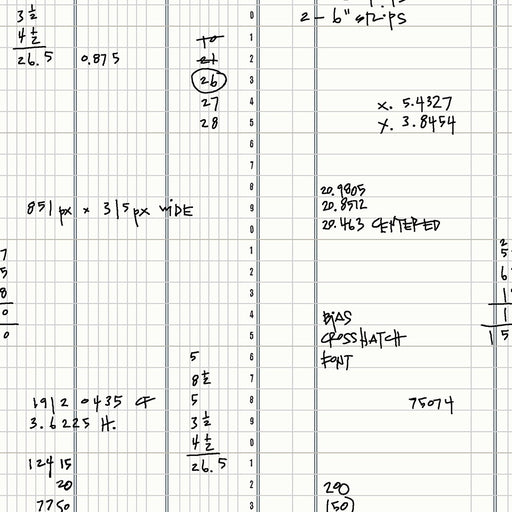 3 ½
4 ½
26.5 0.875
10
21
26
27
28
2 - 6" strips
x. 5.4327
y. 3.8454
851 px x 315 px wide
20.9805
20.8512
20.463 CENTERED
BIAS
CROSSHATCH
FONT
5
8 ½
5
3 ½
4 ½
26.5
1912 0435 CF
3.6225 H.
75074
12415
20
7750
290
150
0
1
2
3
4
5
6
7
8
9
0
1
2
3
4
5
6
7
8
9
0
1
2
3
7
5
8
0
0
2
5
6
1
1
1 5